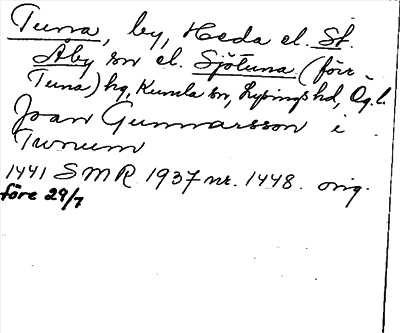 Tuna, by, Heda el. St.
Åby sn el. Sjötuna (förr
Tuna) hg, Kumla sn, Lysings hd, Ög.l.
Joan Gunnarsson i
Twnum
1441 SMR 1937 nr. 1448. orig.
före 29/7